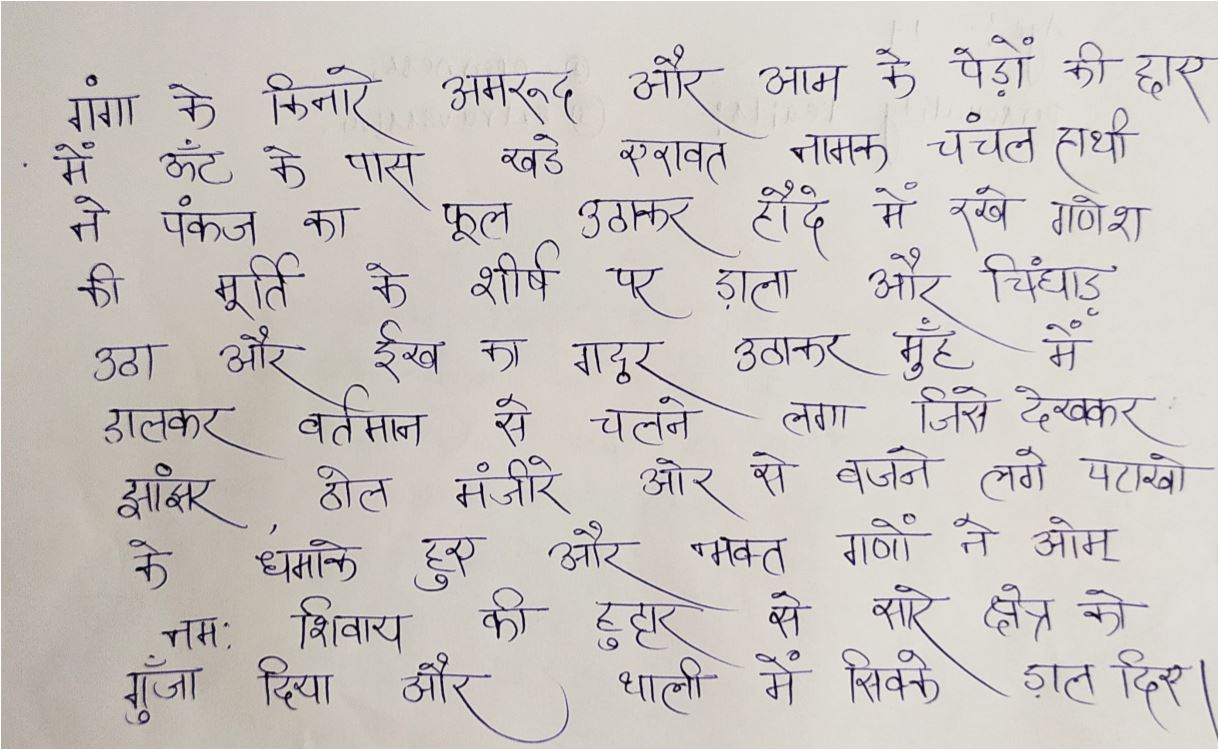 गंगा के किनारे अमरूद और आम के पेड़ों की छार
में ऊँट के पास खडे एरावत नामक चंचल हाथी
ने पंकज का फूल उठाकर हौदे में रखे गणेश
की मूर्ति के शीर्ष पर ड़ाला और चिंघाड़
उठा और ईख का गट्ठर उठाकर मुँह में
डालकर वर्तमान से चलने लगा जिसे देखकर
झांझर, ढोल मंजीरे ओर से बजने लगे पटाखो
के धमाके हुए और भक्त गणों ने ओम्
नमः शिवाय की से सारे क्षेत्र को
गुँजा दिया और थाली में सिक्के ड़ाल दिए।